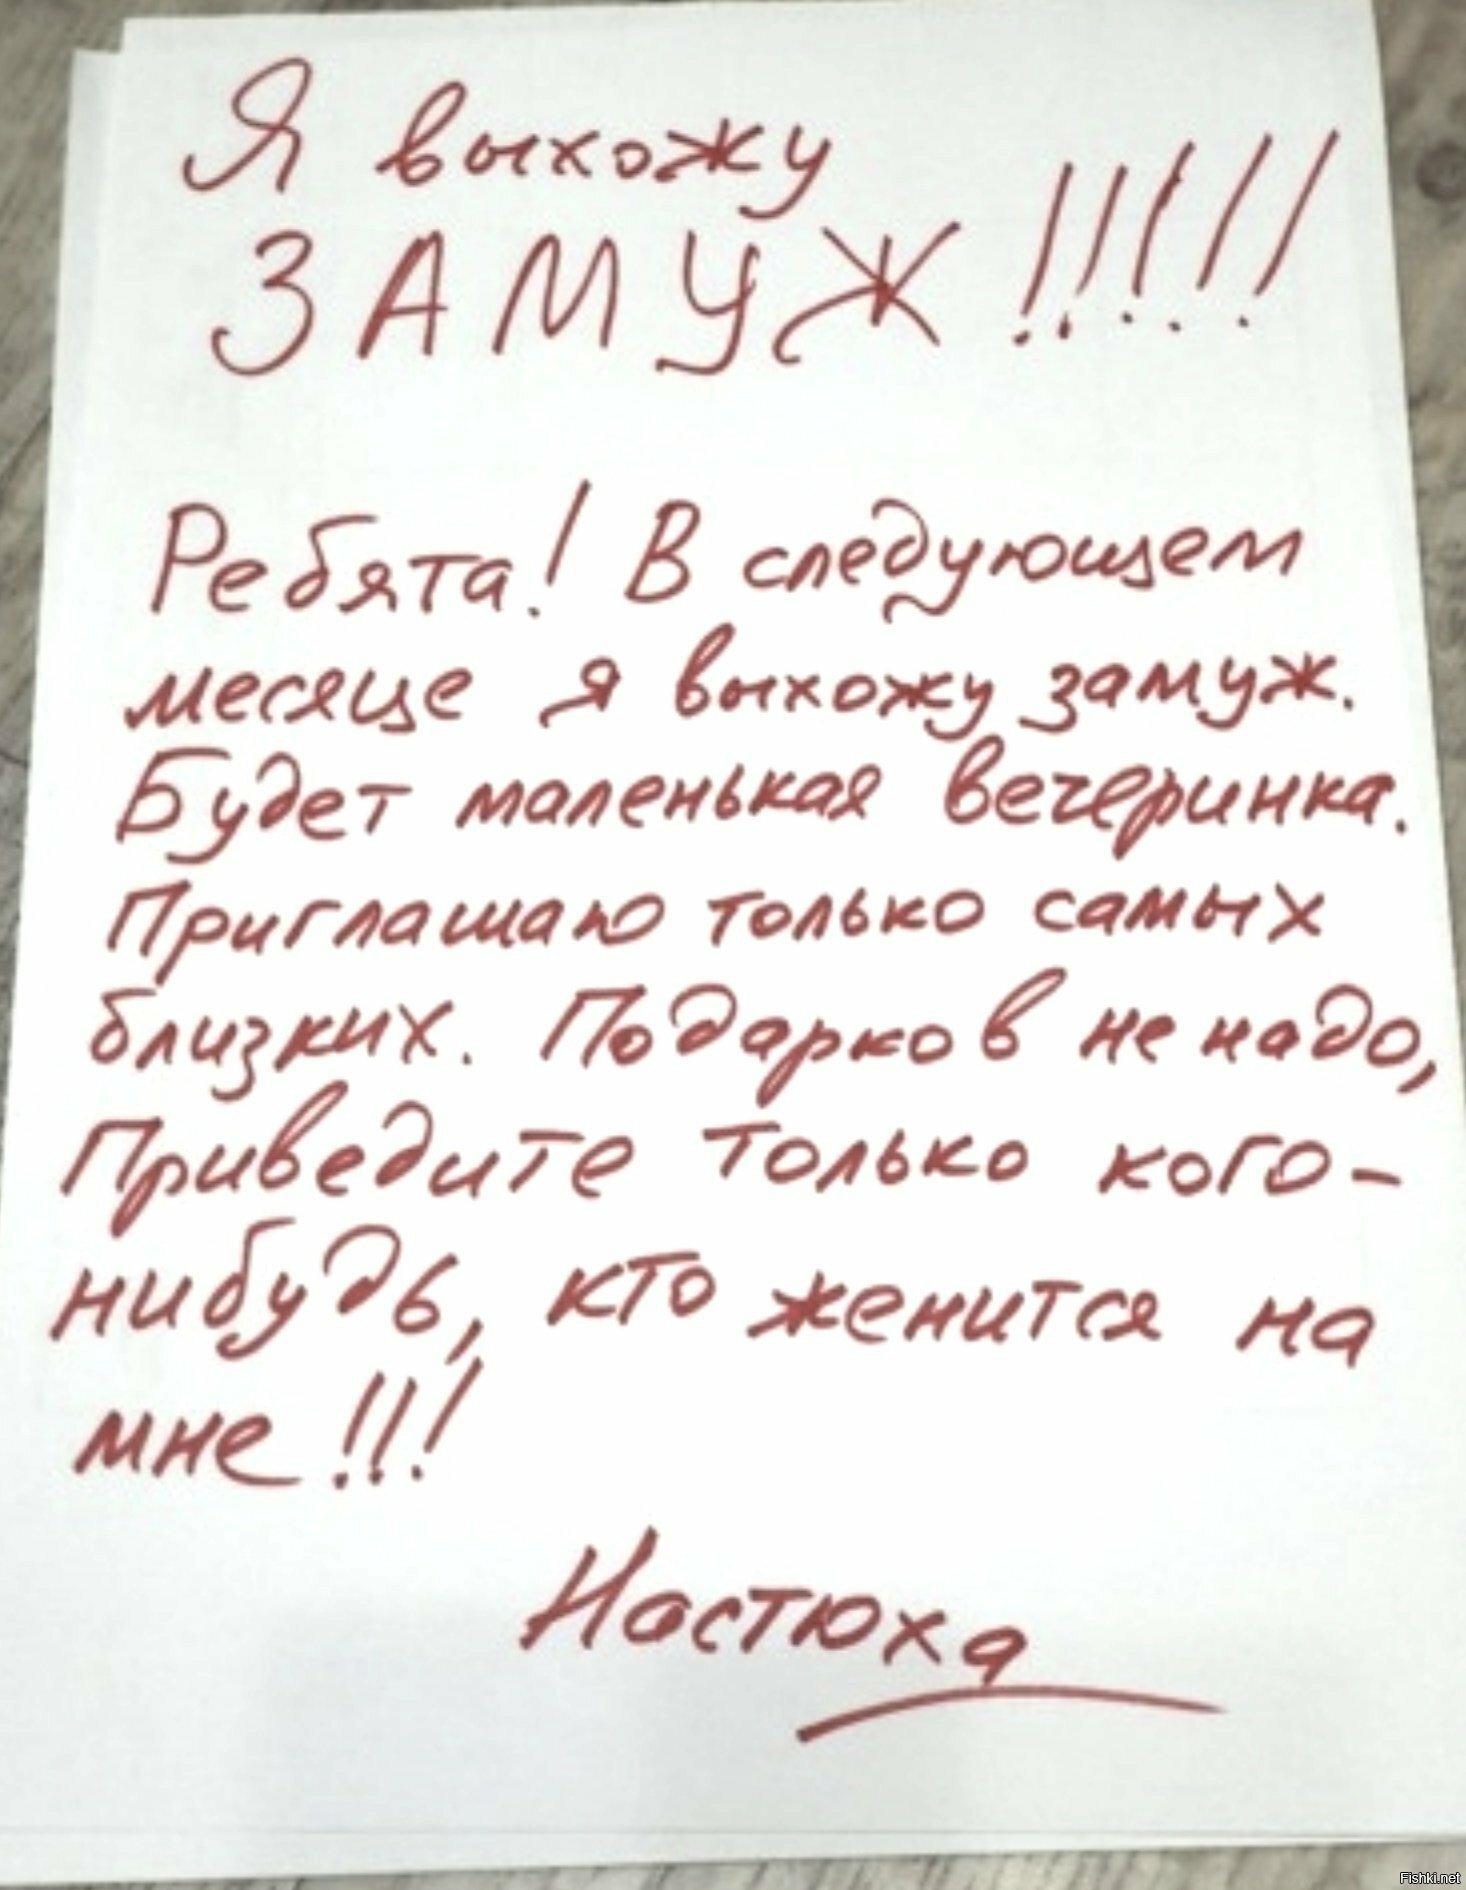 Я выхожу
ЗАМУЖ!!!!!
Ребята! В следующем
месяце я выхожу замуж.
Будет маленькая вечеринка.
Приглашаю только самых
близких. Подарков не надо,
Приведите только кого-
нибудь, кто женится на
мне!!!
Настюха
Fishki.net